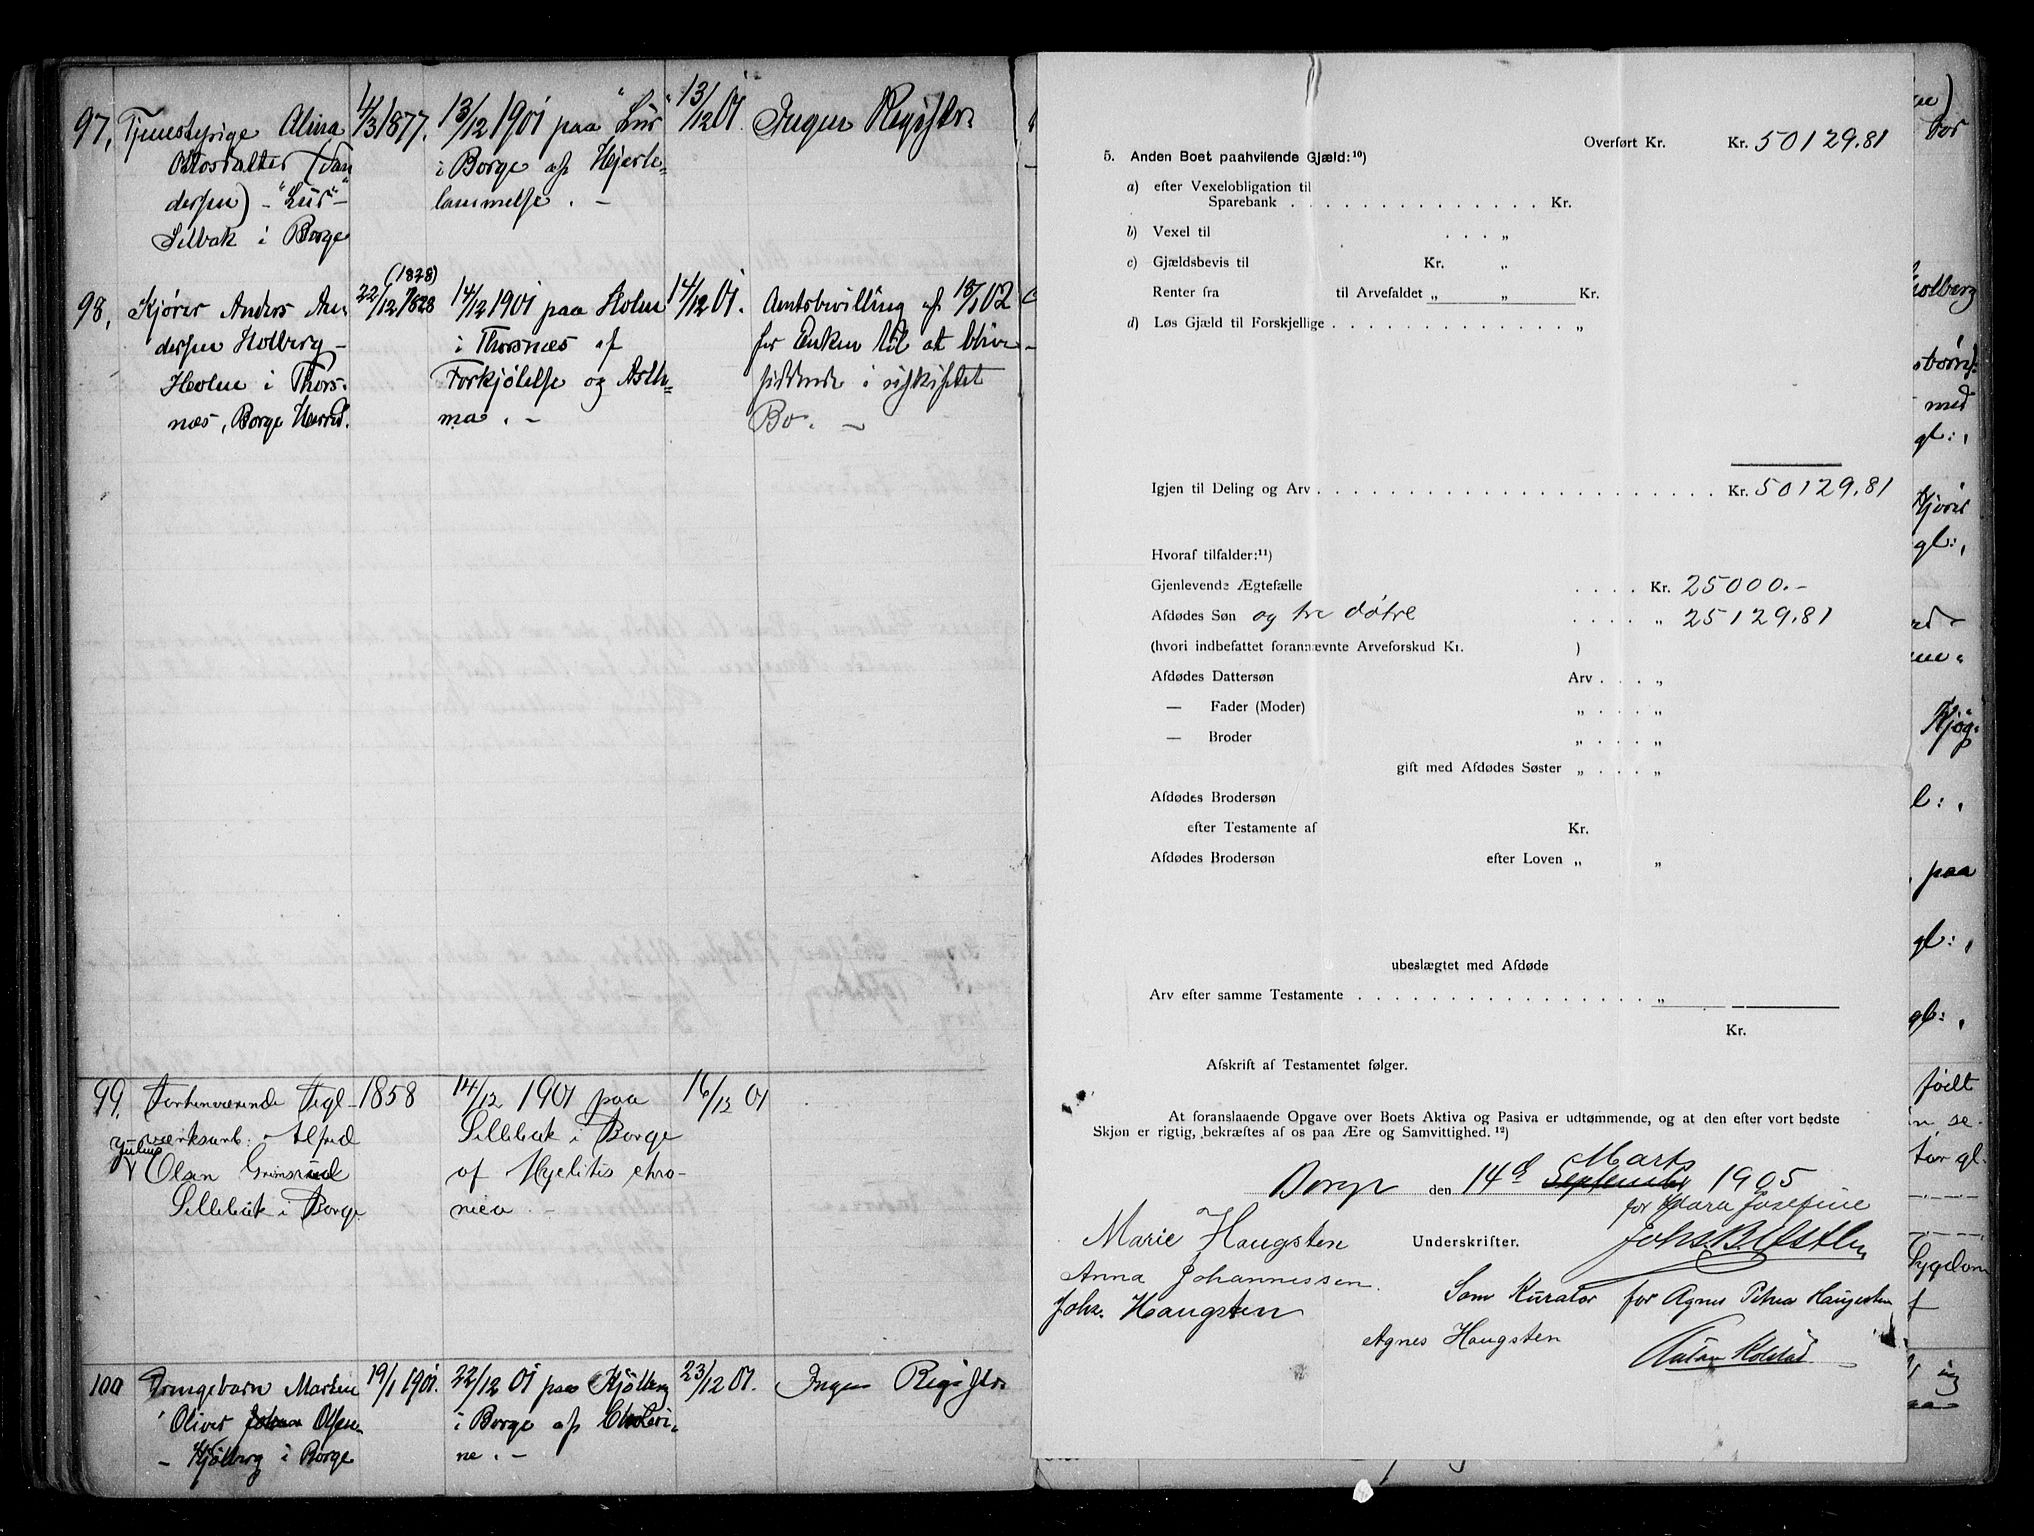 97, Tjenestepige Alina 4/3 1877. 13/12 1901 paa "Lur" 13/12 01. Ingen Registr.
i Borge af Hjerte-
dersen) - "Lur" - lammelse. -
Selbak i Borge
(1828)
98, Kjører Anders An- 22/12 1828 14/12 1901 paa Holm 14/12 01. Amtsbevilling af 18/1 02
dersen Holberg - i Thorsnæs af for Enken til at blive
Holm i Thors- Forkjølelse og Asth- siddende i uskiftet
næs, Borge Herred. ma. - Bo. -
99, Forhenværende Tegl- 1858 14/12 1901 paa 16/12 01
værksarb: Alfred Sellebak i Borge
Julius Olsen Grimsrud af Myelitis chro-
Sellebak i Borge nica -
100 Drengebarn Martin 19/1 1901. 22/12 01 paa Kjølberg 23/12 01. Ingen Registr.
Oliver Johan Olsen - i Borge af Choleri-
- Kjølberg i Borge ne. -
Overført Kr. Kr. 50129.81
5. Anden Boet paahvilende Gjæld:¹⁰)
a) efter Vexelobligation til
Sparebank . . . . . . . . . . . . . . . Kr.
b) Vexel til . . . „
c) Gjældsbevis til Kr. „
Renter fra til Arvefaldet „ „ Kr.
d) Løs Gjæld til Forskjellige . . . . . . . . . . . . . . . „
Igjen til Deling og Arv . . . . . . . . . . . . . . . . . . . . . . . . Kr. 50129.81
Hvoraf tilfalder:¹¹)
Gjenlevende Ægtefælle . . . . Kr. 25000.-
Afdødes Søn og tre døtre . . . . „ 25129.81
(hvori indbefattet forannævnte Arveforskud Kr. )
Afdødes Dattersøn Arv . . . „
— Fader (Moder) „ . . . . „
— Broder „ . . . . „
gift med Afdødes Søster „ . . . . „
Afdødes Brodersøn
efter Testamente af Kr.
Afdødes Brodersøn efter Loven „ „
ubeslægtet med Afdøde
Arv efter samme Testamente . . . . . . . . . . . . . . . . . . „
Kr.
Afskrift af Testamentet følger.
At foranslaaende Opgave over Boets Aktiva og Pasiva er udtømmende, og at den efter vort bedste
Skjøn er rigtig, bekræftes af os paa Ære og Samvittighed. ¹²)
Marts
Borge den 14d September 1905
for Klara Josefine
Marie Haugsten Underskrifter.
Anna Johannessen.
Som Kurator for Agnes Petrea Haugsten
Johs. Haugsten
Agnes Haugsten
Kolstad
bor
Holberg
med
gl:,
Kjører
gl:,
Kjøg-
l:,
paa
gl:,
gl:,
født
se-
gl.
Sygdom
og